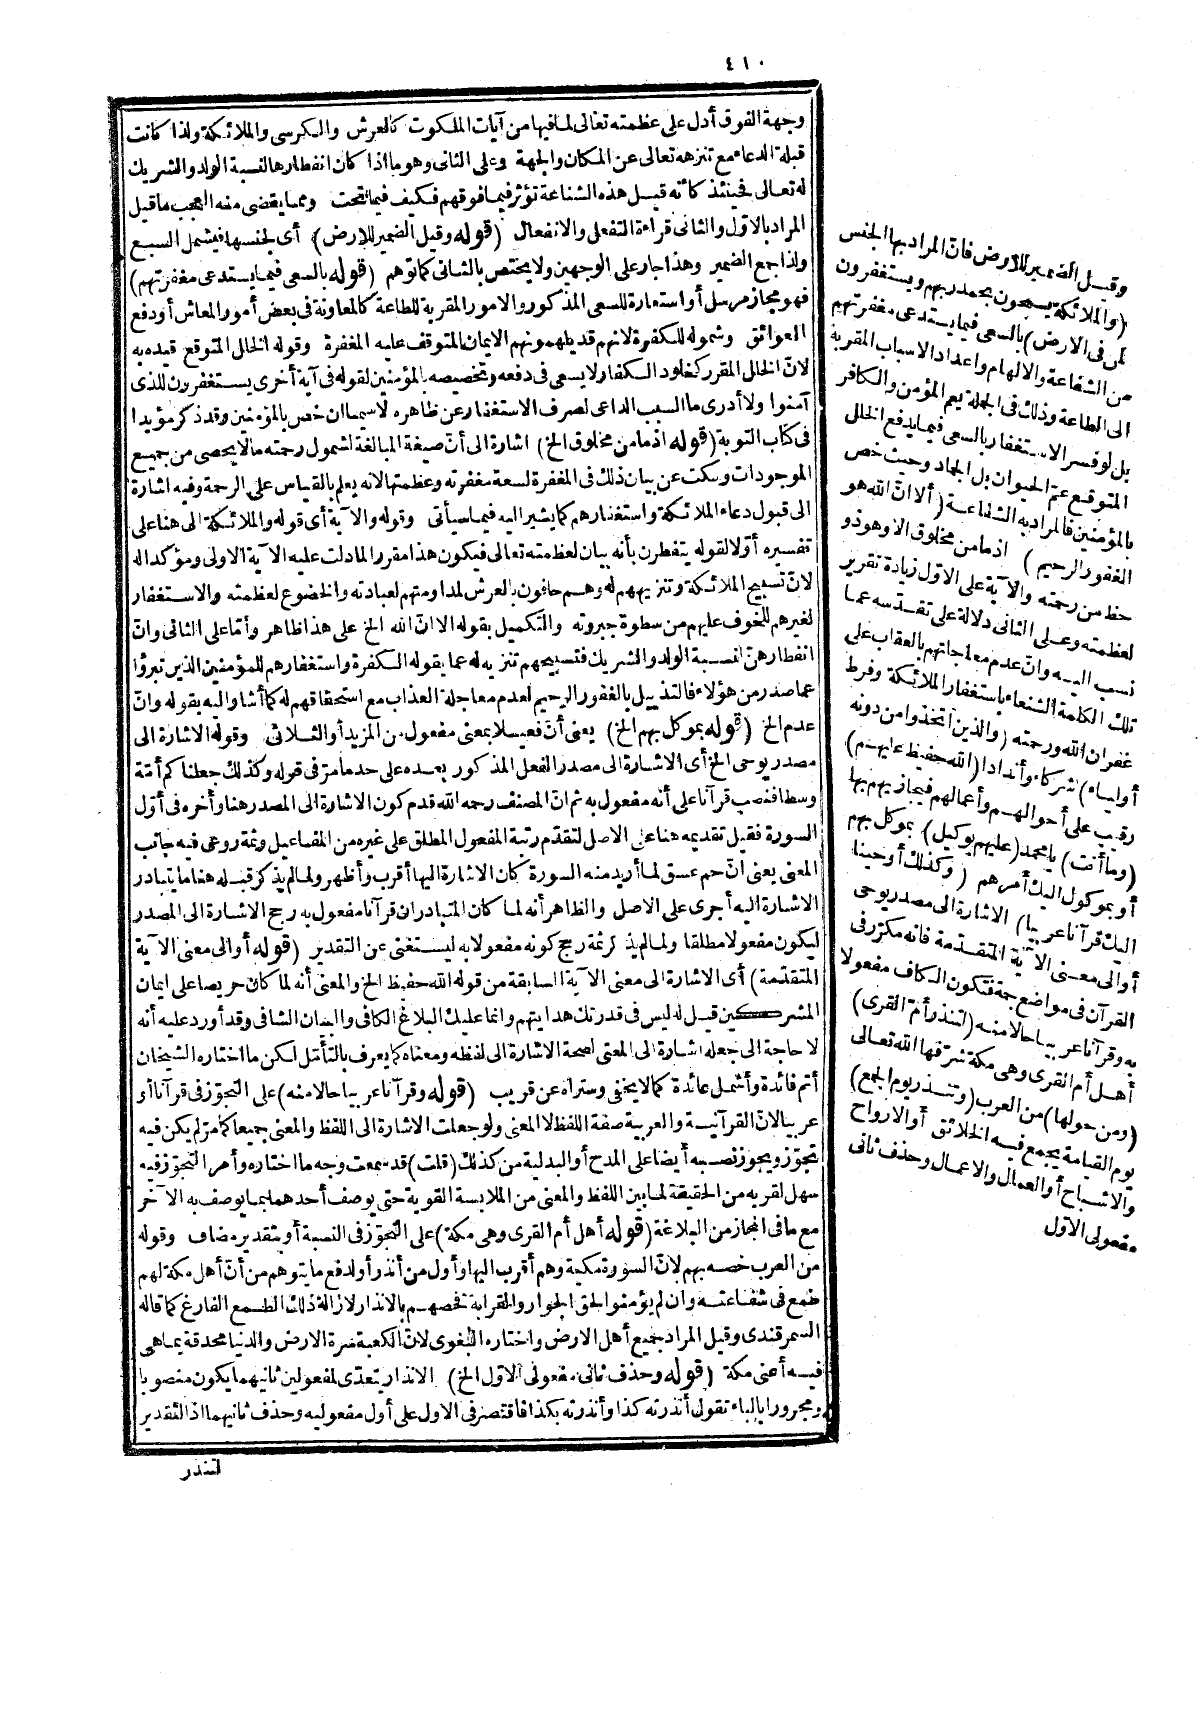 ٤١٠
وجهة الفوق أدل على عظمته تعالى لما فيها من آيات الملكوت كالعرش والكرسى والملائكة ولذا كانت
قبلة الدعاء مع تنزهه تعالى عن المكان والجهة وعلى الثانى وهو ما اذا كان انفطارها لنسبة الولد والشريك
له تعالى فحينئذ كأنه قيل هذه الشناعة تؤثر فيما فوقهم فكيف فيما تحت ومما يقضى منه العجب ما قيل
المراد بالاول والثانى قراءة التفعل والانفعال (قوله وقيل الضمير للارض) أى لجنسها فيشمل السبع
ولذا جمع الضمير وهذا جار على الوجهين ولا يختص بالثانى كما توهم (قوله بالسعى فيما يستدعى مغفرتهم)
فهو مجاز مرسل أو استعارة للسعى المذكور والامور المقربة للطاعة كالمعاونة فى بعض أمور المعاش أو دفع
العوائق وشموله للكفرة لانهم قد يلهمونهم الايمان المتوقف عليه المغفرة وقوله الخلل المتوقع قيده به
لانّ الخلل المقرر كخلود الكفار لا يسعى فى دفعه وتخصيصه بالمؤمنين لقوله فى آية أخرى يستغفرون للذى
آمنوا ولا أدرى ما السبب الداعى لصرف الاستغفار عن ظاهره لاسيما ان خص بالمؤمنين وقد ذكر مؤيدا
فى كتاب التوبة (قوله اذ ما من مخلوق الخ) اشارة الى أنّ صيغة المبالغة لشمول رحمته ما لا يحصى من جميع
الموجودات وسكت عن بيان ذلك فى المغفرة لسعة مغفرته وعظمتها لانه يعلم بالقياس على الرحمة وفيه اشارة
الى قبول دعاء الملائكة واستغفارهم كما يشير اليه فيما سيأتى وقوله والآية أى قوله والملائكة الى هنا على
تفسيره أولا لقوله يتفطرن بأنه بيان لعظمته تعالى فيكون هذا مقررا لما دلت عليه الآية الاولى ومؤكدا له
لانّ تسبيح الملائكة وتنزيههم له وهم حافون بالعرش لمداومتهم لعبادته والخضوع لعظمته والاستغفار
لغيرهم للخوف عليهم من سطوة جبروته والتكميل بقوله الا انّ الله الخ على هذا ظاهر وأمّا على الثانى وانّ
انفطارهنّ لنسبة الولد والشريك فتسبيحهم تنزيه له عما يقوله الكفرة واستغفارهم للمؤمنين الذين تبرؤا
عما صدر من هؤلاء فالتذييل بالغفور الرحيم لعدم معاجلة العذاب مع استحقاقهم له كما أشار اليه بقوله وانّ
عدم الخ (قوله بموكل بهم الخ) يعنى أنّ فعيلا بمعنى مفعول من المزيد أو الثلاثى وقوله الاشارة الى
مصدر يوحى الخ أى الاشارة الى مصدر الفعل المذكور بعده على حد ما مرّ فى قوله وكذلك جعلناكم أمّة
وسطا فنصب قرآنا على أنه مفعول به ثم انّ المصنف رحمه الله قدم كون الاشارة الى المصدر هنا وأخره فى أول
السورة فقيل تقديمه هنا على الاصل لتقدم رتبة المفعول المطلق على غيره من المفاعيل وثمة روعى فيه جانب
المعنى يعنى أنّ حم عسق لما أريد منه السورة كان الاشارة اليها أقرب وأظهر ولما لم يذكر قبله هنا ما يتبادر
الاشارة اليه أجرى على الاصل والظاهر أنه لما كان المتبادر ان قرآنا مفعول به رجح الاشارة الى المصدر
ليكون مفعولا مطلقا ولما لم يذكر ثمة رجح كونه مفعولا به ليستغنى عن التقدير (قوله أو الى معنى الآية
المتقدّمة) أى الاشارة الى معنى الآية السابقة من قوله الله حفيظ الخ والمعنى أنه لما كان حريصا على ايمان
المشركين قيل له ليس فى قدرتك هدايتهم وانما عليك البلاغ الكافى والبيان الشافى وقد أورد عليه أنه
لا حاجة الى جعله اشارة الى المعنى لصحة الاشارة الى لفظه ومعناه كما يعرف بالتأمّل لكن ما اختاره الشيخان
أتم فائدة وأشمل عائدة كما لا يخفى وستراه عن قريب (قوله وقرآنا عربيا حالا منه) على التجوّز فى قرآنا أو
عربيا لانّ القرآنية والعربية صفة اللفظ لا المعنى ولو جعلت الاشارة الى اللفظ والمعنى جميعا كما مرّ لم يكن فيه
تجوّز ويجوز نصبه أيضا على المدح أو البدلية من كذلك (قلت) قد سمعت وجه ما اختاره وأمر التجوّز فيه
سهل لقربه من الحقيقة لما بين اللفظ والمعنى من الملابسة القوية حتى يوصف أحدهما بما يوصف به الآخر
مع ما فى المجاز من البلاغة (قوله أهل أم القرى وهى مكة) على التجوّز فى النسبة أو بتقدير مضاف وقوله
من العرب خصه بهم لانّ السورة مكية وهم أقرب اليها وأول من أنذر أو لدفع ما يتوهم من أنّ أهل مكة لهم
طمع فى شفاعته وان لم يؤمنوا لحق الجوار والقرابة فخصهم بالانذار لازالة ذلك الطمع الفارغ كما قاله
السمرقندى وقيل المراد جميع أهل الارض واختاره البغوى لانّ الكعبة سرة الارض والدنيا محدقة بما هى
فيه أعنى مكة (قوله وحذف ثانى مفعولى الاول الخ) الانذار يتعدّى لمفعولين ثانيهما يكون منصوبا
ومجرورا بالباء تقول أنذرته كذا وأنذرته بكذا فاقتصر فى الاول على أول مفعوليه وحذف ثانيهما اذ التقدير
لتنذر
وقيل الضمير للارض فانّ المراد بها الجنس
(والملائكة يسبحون بحمد ربهم ويستغفرون
لمن فى الارض) بالسعى فيما يستدعى مغفرتهم
من الشفاعة والالهام واعداد الاسباب المقربة
الى الطاعة وذلك فى الجملة يعم المؤمن والكافر
بل لو فسر الاستغفار بالسعى فيما يدفع الخلل
المتوقع عمّ الحيوان بل الجماد وحيث خص
بالمؤمنين فالمراد به الشفاعة (ألا انّ الله هو
الغفور الرحيم) اذ ما من مخلوق الا وهو ذو
حظ من رحمته والآية على الاول زيادة تقرير
لعظمته وعلى الثانى دلالة على تقدّسه عما
نسب اليه وانّ عدم معاجلتهم بالعقاب على
تلك الكلمة الشنعاء باستغفار الملائكة وفرط
غفران الله ورحمته (والذين اتخذوا من دونه
أولياء) شركاء وأندادا (الله حفيظ عليهم)
رقيب على أحوالهم وأعمالهم فيجازيهم بها
(وما أنت) يا محمد (عليهم بوكيل) بموكل بهم
أو بموكول اليك أمرهم (وكذلك أوحينا
اليك قرآنا عربيا) الاشارة الى مصدر يوحى
أو الى معنى الآية المتقدّمة فانه مكرّر فى
القرآن فى مواضع جمة فتكون الكاف مفعولا
به وقرآنا عربيا حالا منه (لتنذر أم القرى)
أهل أم القرى وهى مكة شرّفها الله تعالى
(ومن حولها) من العرب (وتنذر يوم الجمع)
يوم القيامة يجمع فيه الخلائق أو الارواح
والاشباح أو العمال والاعمال وحذف ثانى
مفعولى الاول